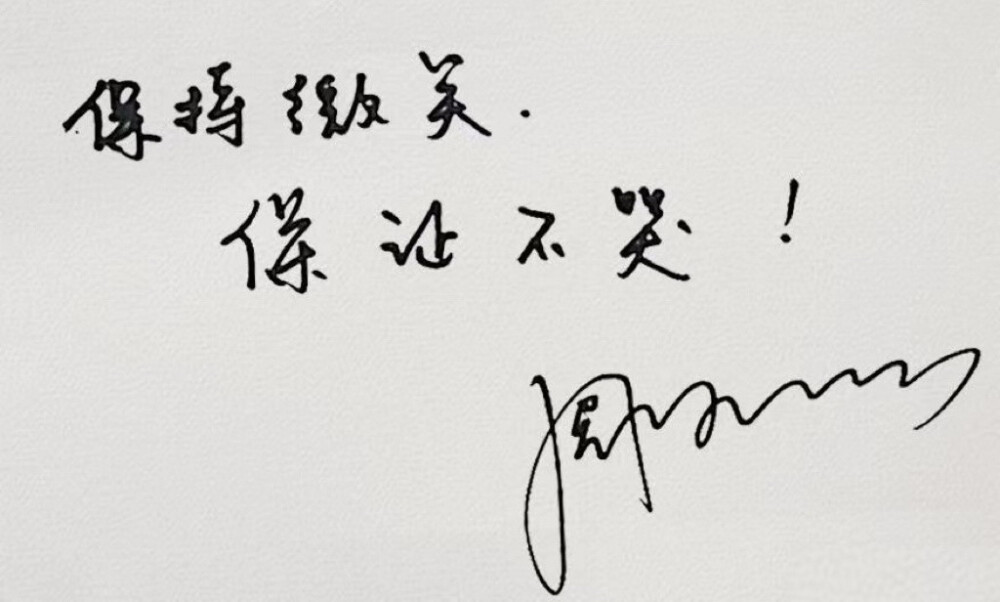 保持微笑.
保证不哭!
周